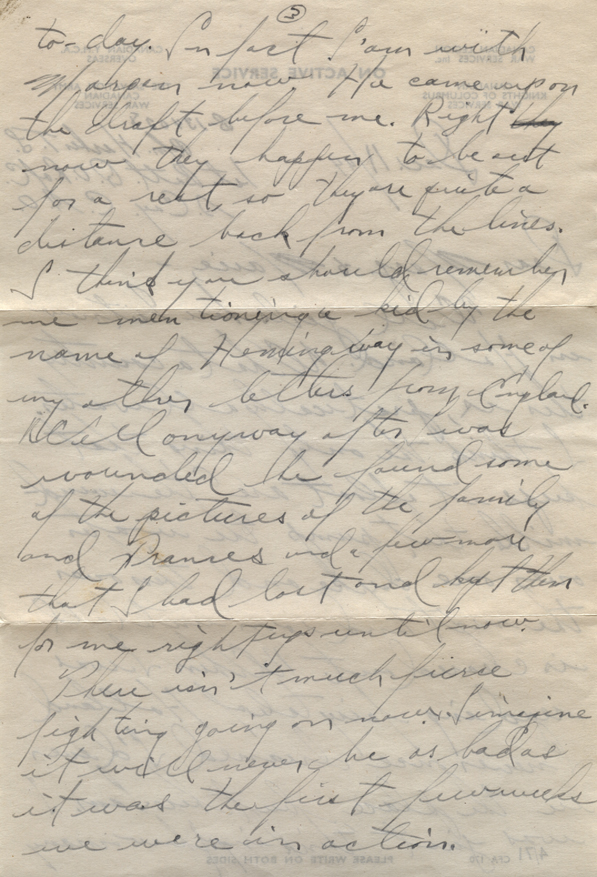 3
to-day. In fact I'am with
now. He came upon
the draft before me. Right they
now they happen to be out
for a rest, so they are quite a
distance back from the lines.
I think you should remember
me mentioning a kid by the
name of Hemingway in some of
my other letters from England.
Well anyway after I was
wounded he found some
of the pictures of the family
and Frances and a few more
that I had lost and kept them
for me right up until now.
There isn't much fierce
fighting going on now. I imagine
it will never be as bad as
it was the first few weeks
we were in action.